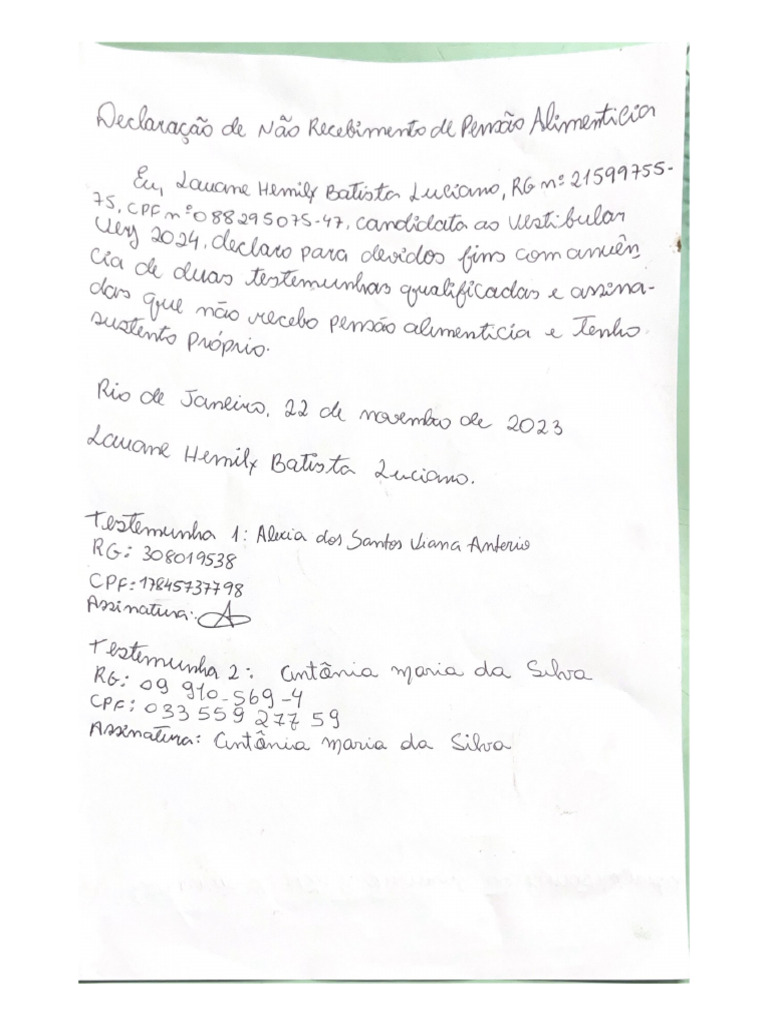 Declaração de Não Recebimento de Pensão Alimenticia
Eu, Lauane Hemily Batista Luciano, RG nº 21599755-
75, CPF nº 088295075-47, candidata ao Vestibular
Uerj 2024, declaro para devidos fins com anuên
cia de duas testemunhas qualificadas e assina-
das que não recebo pensão alimenticia e Tenho
sustento próprio.
Rio de Janeiro, 22 de novembro de 2023
Lauane Hemily Batista Luciano.
Testemunha 1: Alexia dos Santos Viana Anterio
RG: 308019538
CPF: 17845737798
Assinatura:
Testemunha 2: Antônia maria da Silva
RG: 09 910-569-4
CPF: 033 559 277 59
Assinatura: Antônia maria da Silva